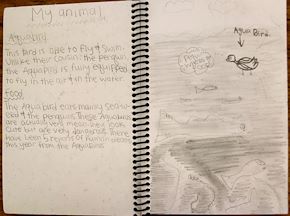 My animal
Aquabird
This bird is able to fly & swim.
Unlike their cousin: the penguin,
the Aquabird is fully equipped
to fly in the air & in the water.
Food
The Aqua bird eats mainly sea-
weed & the penguin. These Aquabirds
are actually very mean. they look
cute but are very dangerous. There
have been 5 reports of human deaths
this year from the Aquabirds
Aqua Bird